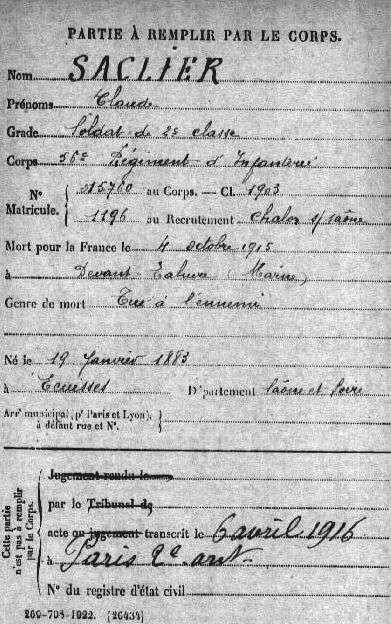 PARTIE À REMPLIR PAR LE CORPS.
Nom SACLIER
Prénoms Claude
Grade Soldat de 2e classe
Corps 56e Régiment d'Infanterie
N° Matricule. { 015760 au Corps. — Cl. 1903
1196 au Recrutement Chalon s/ saône
Mort pour la France le 4 octobre 1915
à Devant Tahure (Marne)
Genre de mort Tué à l'ennemi
Né le 19 Janvier 1883
à Ecuisses Département Saône et Loire
Arrt municipal (pr Paris et Lyon), à défaut rue et N°. }
Cette partie n'est pas à remplir par le Corps.
Jugement rendu le
par le Tribunal de
acte ou jugement transcrit le 6 avril 1916
à Paris 2e arrt.
N° du registre d'état civil
269-708-1922. [26434]